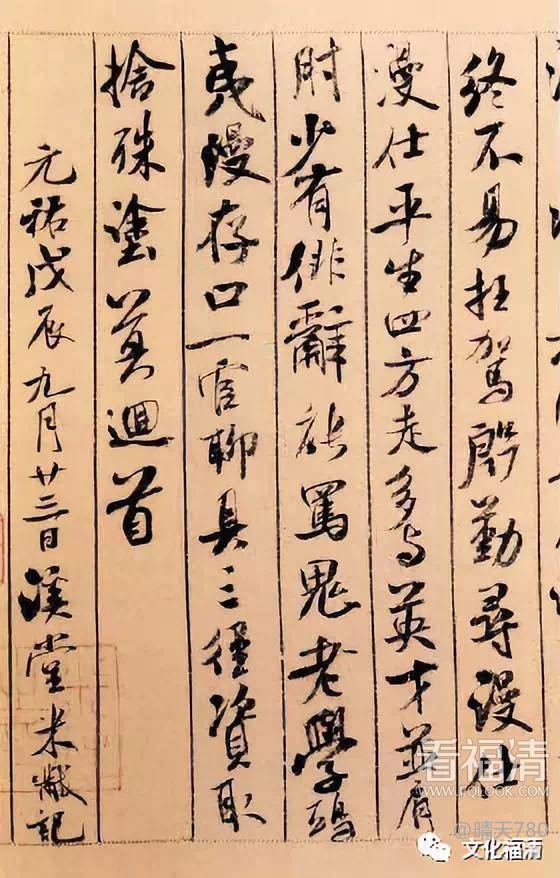 終不易枉駕殷勤尋漫仕
漫仕平生四方走多与英才並肩
肘少有俳辭能罵鬼老學鴟
夷漫存口一官聊具三徑資取
捨殊塗莫迴首
元祐戊辰九月廿三日溪堂米黻記
看福清
WWW.FQLOOK.COM
@晴天780
文化福清